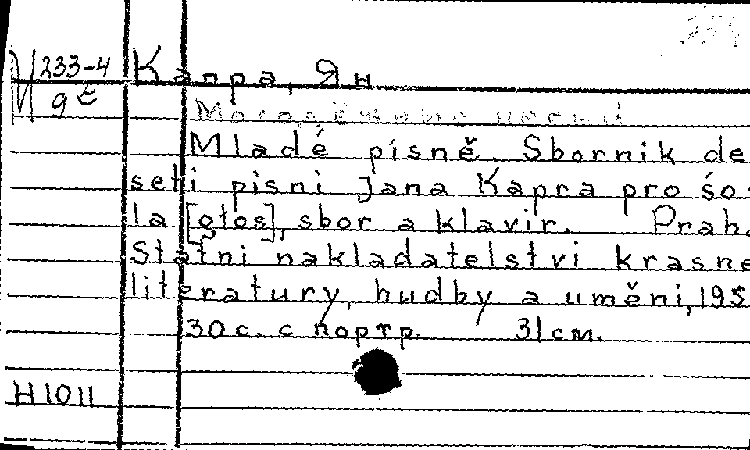 М 233-4
9
Капра, Ян.
Mladé písně. Sbornik de
seti pisni Jana Kapra pro šo
la [głos], sbor a klavir. Praha
Statni nakladatelstvi krasne
literatury, hudby a uměni, 195
30 с. с портр. 31 см.
H1011